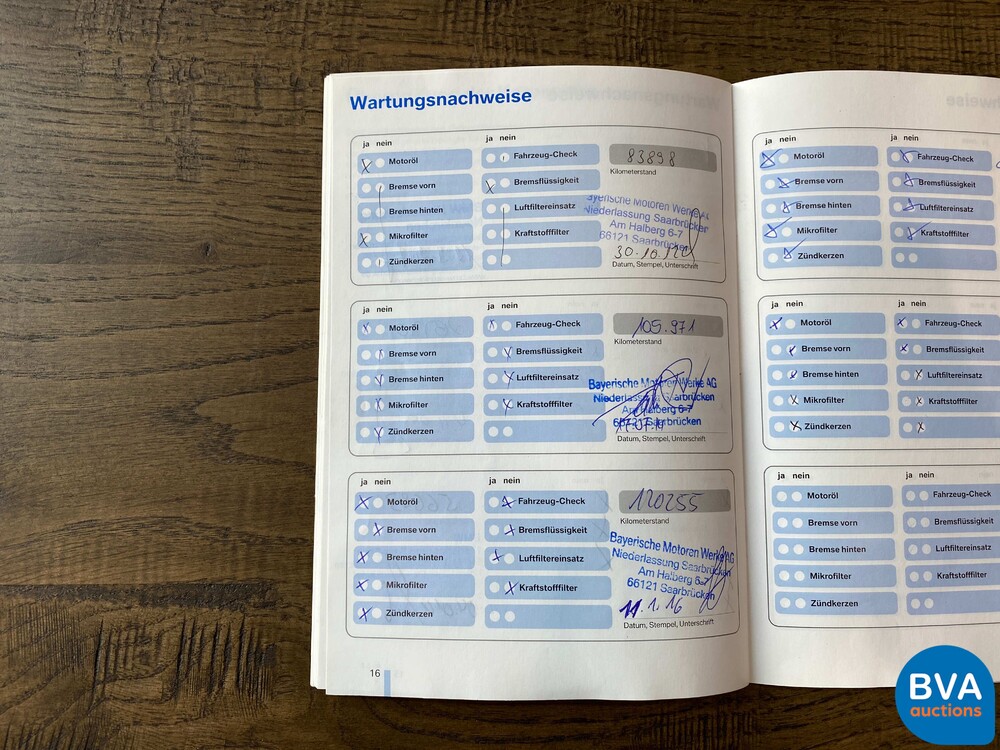 Wartungsnachweise
ja nein
ja nein
Motoröl
Bremse vorn
Bremse hinten
Mikrofilter
Zündkerzen
Fahrzeug-Check
Bremsflüssigkeit
Luftfiltereinsatz
Kraftstofffilter
83898
Kilometerstand
Bayerische Motoren Werke AG
Niederlassung Saarbrücken
Am Halberg 6-7
66121 Saarbrücken
Datum, Stempel, Unterschrift
ja nein
ja nein
Motoröl
Bremse vorn
Bremse hinten
Mikrofilter
Zündkerzen
Fahrzeug-Check
Bremsflüssigkeit
Luftfiltereinsatz
Kraftstofffilter
105.971
Kilometerstand
Bayerische Motoren Werke AG
Niederlassung Saarbrücken
Am Halberg 6-7
66121 Saarbrücken
Datum, Stempel, Unterschrift
ja nein
ja nein
Motoröl
Bremse vorn
Bremse hinten
Mikrofilter
Zündkerzen
Fahrzeug-Check
Bremsflüssigkeit
Luftfiltereinsatz
Kraftstofffilter
120255
Kilometerstand
Bayerische Motoren Werke AG
Niederlassung Saarbrücken
Am Halberg 6-7
66121 Saarbrücken
11.1.16
Datum, Stempel, Unterschrift
16
ja nein
ja nein
Motoröl
Bremse vorn
Bremse hinten
Mikrofilter
Zündkerzen
Fahrzeug-Check
Bremsflüssigkeit
Luftfiltereinsatz
Kraftstofffilter
ja nein
ja nein
Motoröl
Bremse vorn
Bremse hinten
Mikrofilter
Zündkerzen
Fahrzeug-Check
Bremsflüssigkeit
Luftfiltereinsatz
Kraftstofffilter
ja nein
ja nein
Motoröl
Bremse vorn
Bremse hinten
Mikrofilter
Zündkerzen
Fahrzeug-Check
Bremsflüssigkeit
Luftfiltereinsatz
Kraftstofffilter
BVA
auctions